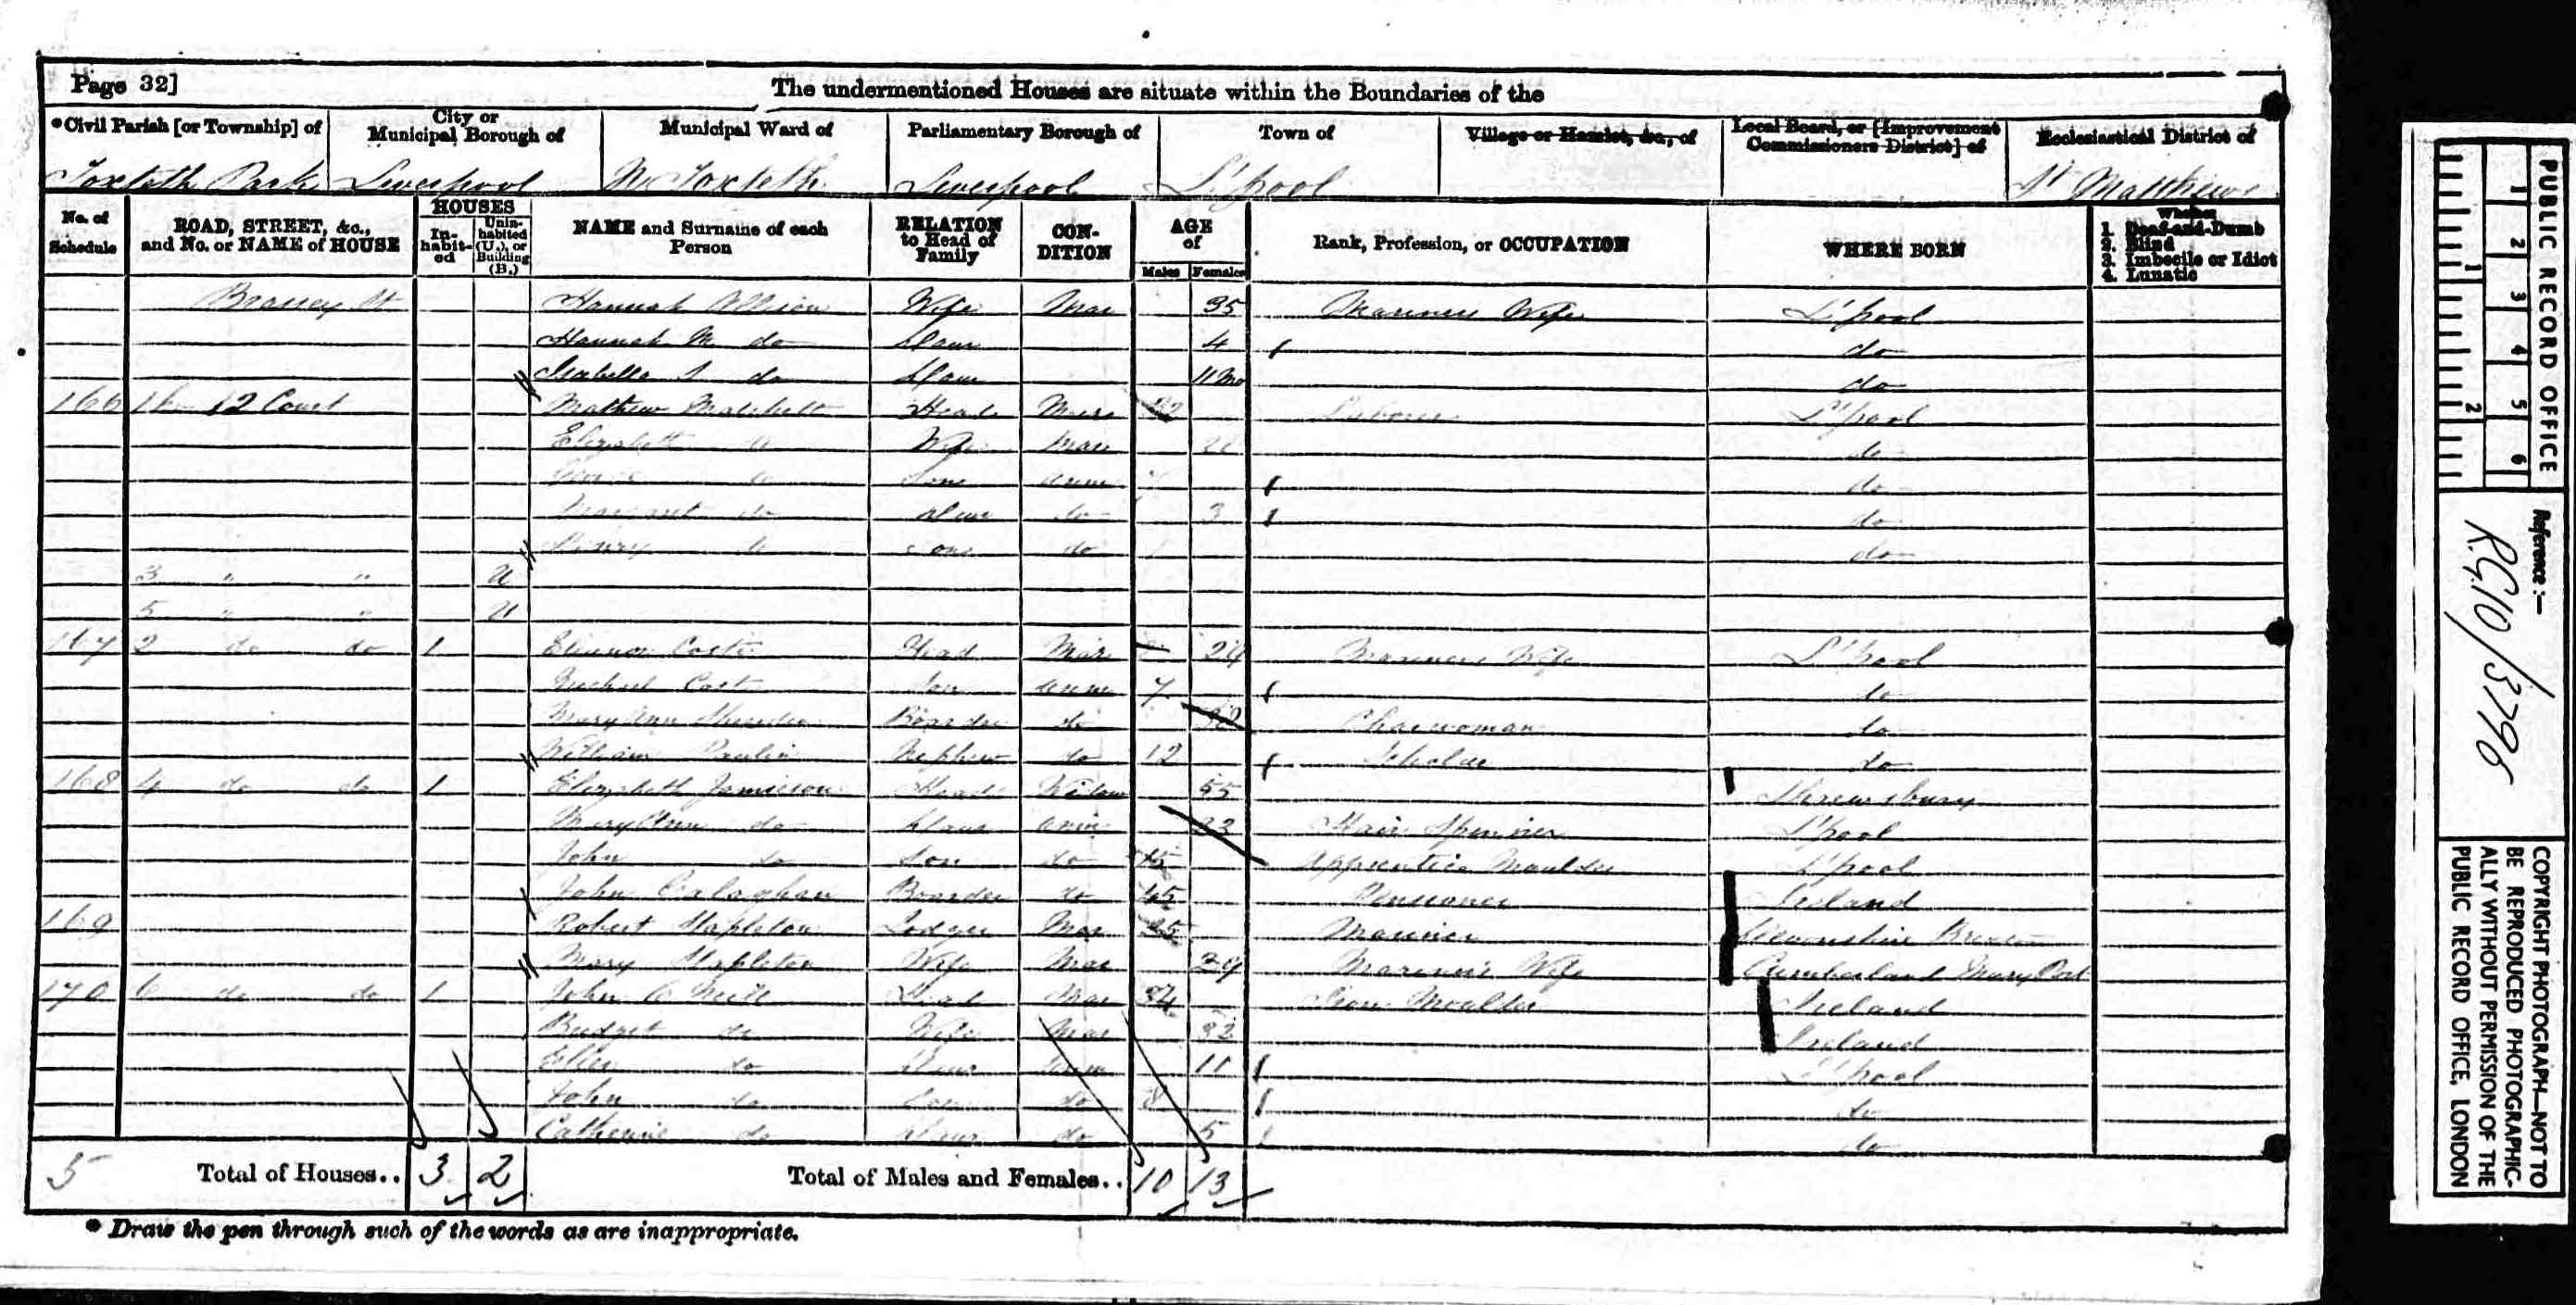 Page 32] The undermentioned Houses are situate within the Boundaries of the
*Civil Parish [or Township] of City or Municipal Borough of Municipal Ward of Parliamentary Borough of Town of Village or Hamlet, &c., of Local Board, or [Improvement Commissioners District] of Ecclesiastical District of
Toxteth Park Liverpool N Toxteth Liverpool L'pool St Matthews
No. of Schedule ROAD, STREET, &c., and No. or NAME of HOUSE HOUSES Inhabited Uninhabited (U.), or Building (B.) NAME and Surname of each Person RELATION to Head of Family CONDITION AGE of Males Females Rank, Profession, or OCCUPATION WHERE BORN Whether 1. Deaf-and-Dumb 2. Blind 3. Imbecile or Idiot 4. Lunatic
Brassey St Hannah Wife Mar 35 Mariners Wife L'pool
Hannah M do Daur 4 do
Isabella S do Daur 11 Mo do
166 12 Court Mathew Head Laborer L'pool
Elizabeth do Wife do
do Son Unm do
Margaret do Daur do 3 do
Henry do Son do do
3 " " U
5 " " U
167 2 do do 1 Elienor Head Mar Mariners Wife L'pool
Michael Son Unm 7 do
Mary Ann Boarder do Charwoman do
William Nephew do 12 Scholar do
168 4 do do 1 Elizabeth Jamieson Head Widow 55 Shrewsbury
Mary Ann do Daur Unm 23 Hair Spinner L'pool
John do Son do 15 Apprentice Moulder L'pool
John Calaghan Boarder do Pensioner Ireland
169 Robert Stapleton Lodger Mar Mariner Devonshire
Mary Stapleton Wife Mar 29 Mariner's Wife Cumberland Mary Port
170 6 do do 1 John O Neill Head Mar 34 Iron Moulder Ireland
Bridget do Wife Mar 32 Ireland
Ellen do Daur Unm 11 L'pool
John do Son do 8 do
Catherine do Daur do 5 do
5 Total of Houses.. 3 2 Total of Males and Females.. 10 13
* Draw the pen through such of the words as are inappropriate.
PUBLIC RECORD OFFICE
1 2 3 4 5 6
1 2
Reference :-
R.G. 10/3796
COPYRIGHT PHOTOGRAPH-NOT TO
BE REPRODUCED PHOTOGRAPHIC-
ALLY WITHOUT PERMISSION OF THE
PUBLIC RECORD OFFICE, LONDON